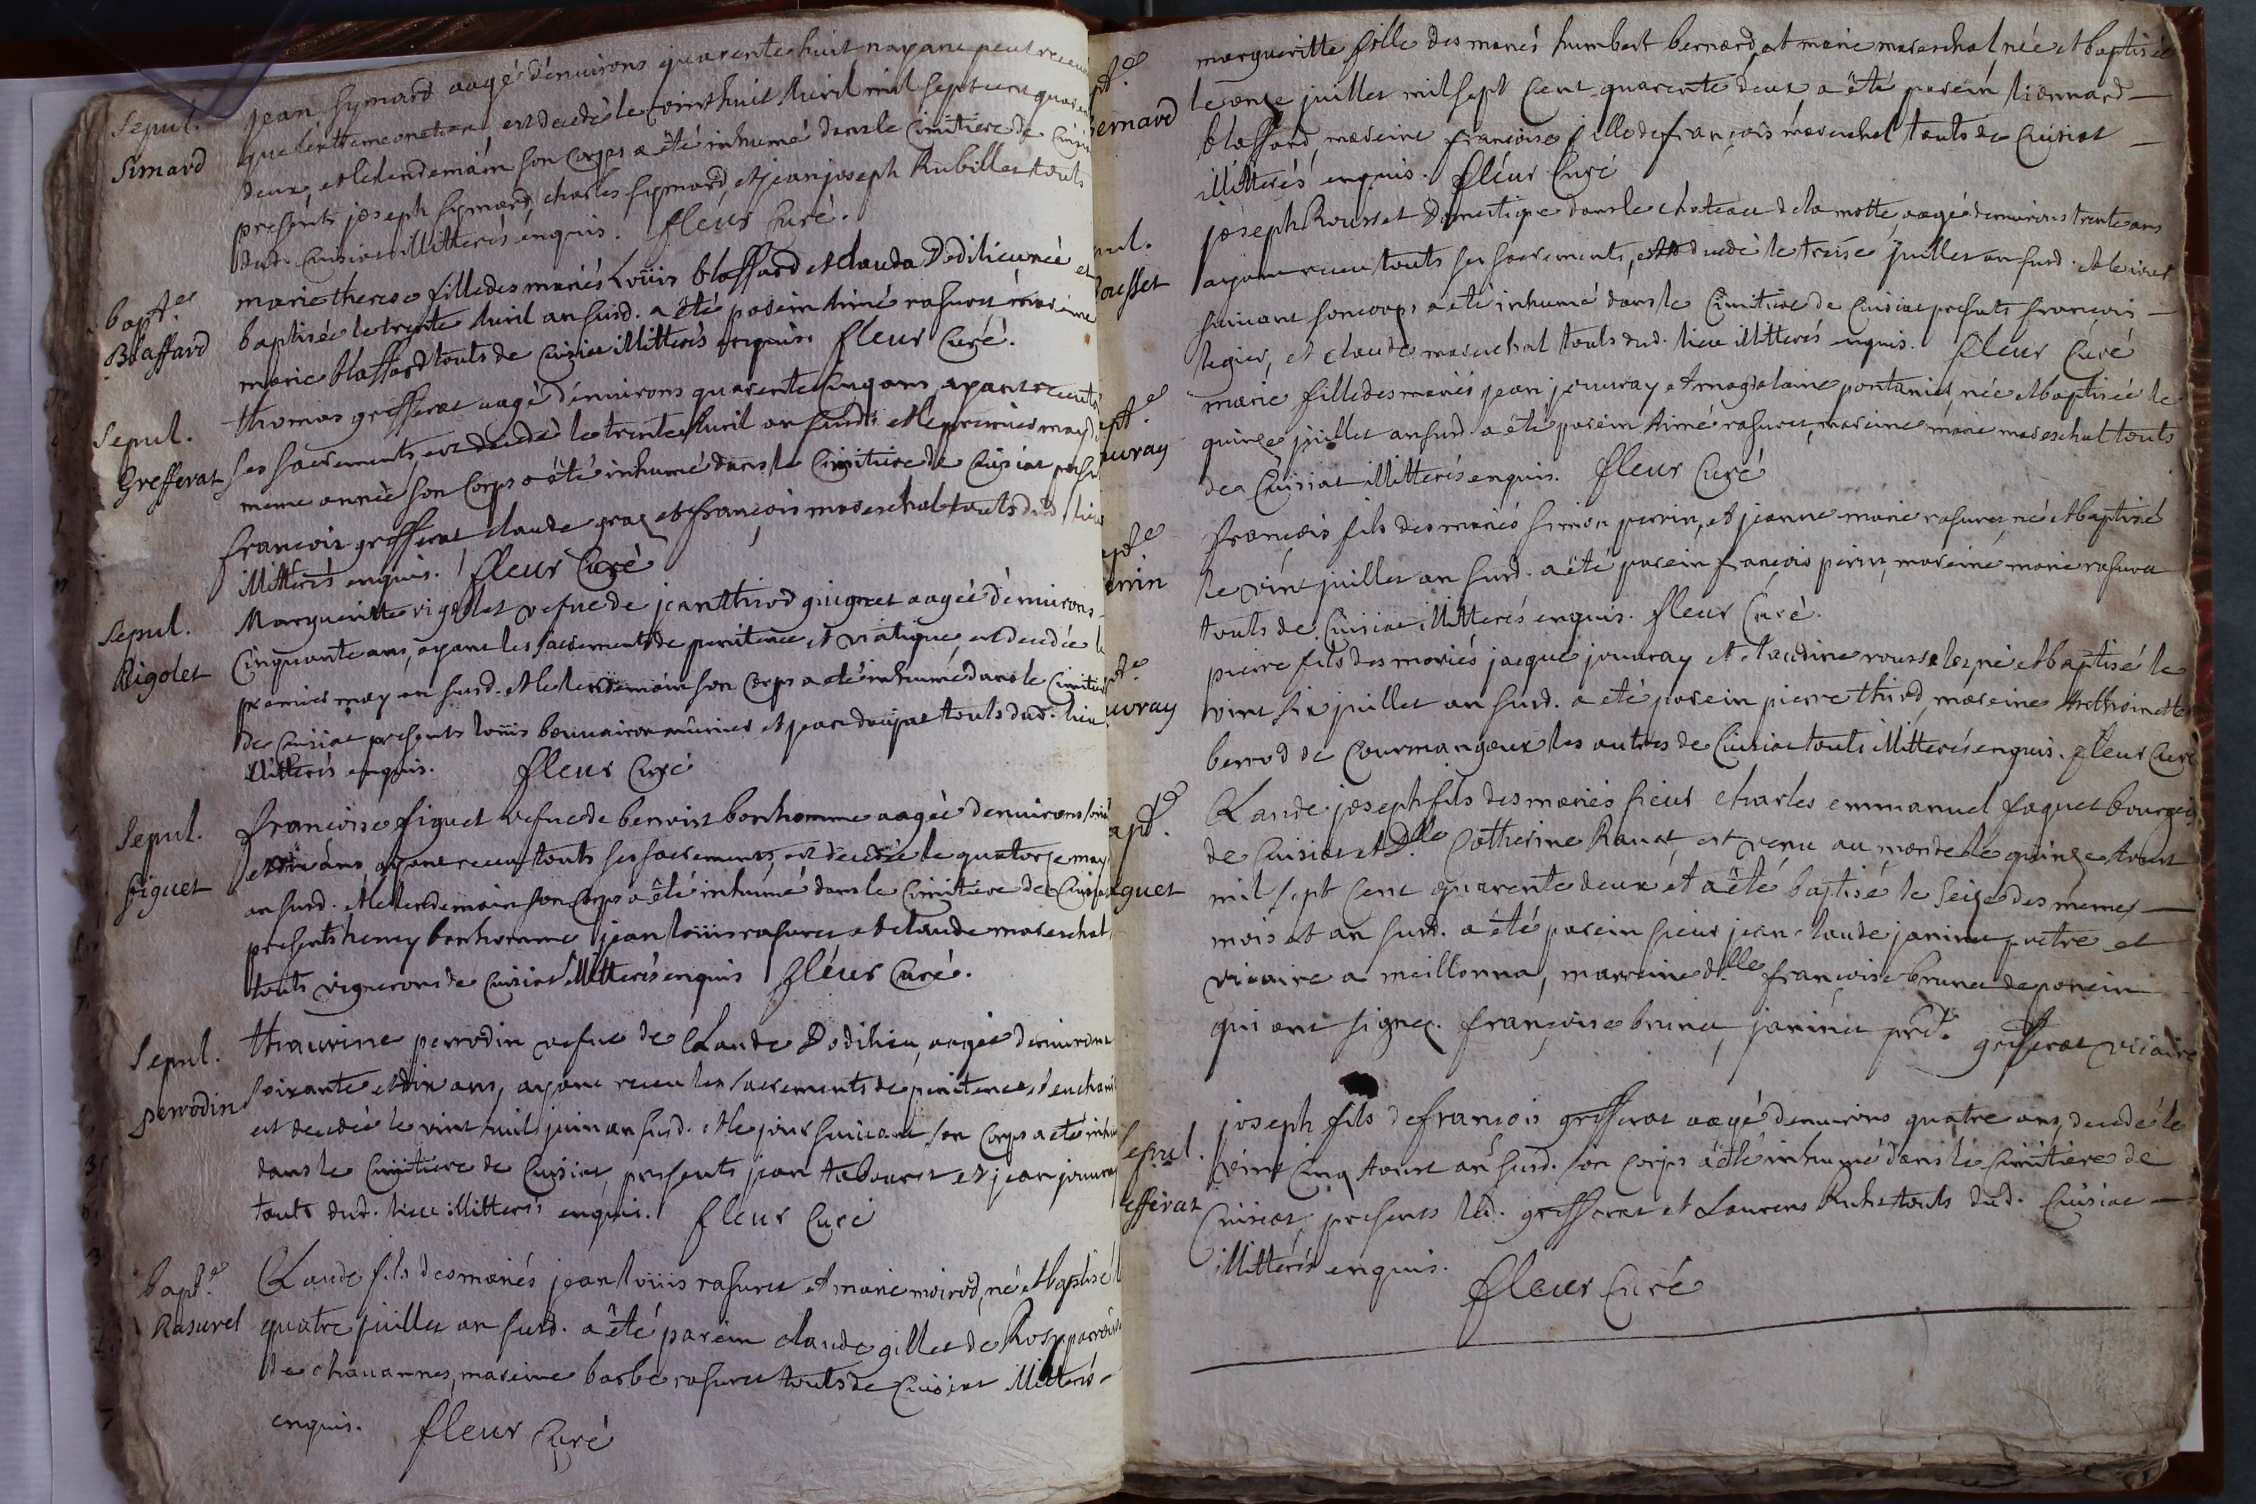 Sepul.
Simard
jean Symard aagé d'environs quarente huit n'ayant peut recevoir
que l'extremeonction est decedé le vint huit Avril mil sept cent quarente
deux, et le lendemain son corps a été inhumé dans le Cimitiere de Cuisiat
presents joseph Symard, charles Symard, et jean joseph Rubillet touts
dud. Cuisiat illitterés enquis. fleur Curé.
bapt.e
Blaffard
marie therese fille des mariés Loüis blaffard et clauda Dodilieu, née et
baptisée le trente Avril an susd. a été parein Aimé rasuret mareine
marie blaffard touts de Cuisiat illitterés enquis. fleur Curé.
Sepul.
Grefferat
thomas grefferat aagé d'environs quarente cinq ans, ayant receu touts
ses sacrements, est decedé le trente Avril an susdt. et le premier may de
meme année son Corps a été inhumé dans le Cimitiere de Cuisiat presents
francois grefferat claude graz et françois mareschal touts dud. lieu
illitterés enquis. fleur Curé
Sepul.
Rigolet
Margueritte rigollet vefue de jean thirod guignet aagée d'environs
Cinquante ans, ayant les sacrements de penitence et viatique, est decedée le
premier may an susd. et le lendemain son Corps a été inhumé dans le Cimitiere
de Cuisiat presents loüis beauvairon mûnier et jean doujat touts dud. lieu
illitterés enquis. fleur Curé
Sepul.
figuet
francoise figuet vefue de benoist bonhomme aagée d'environs soixante
et dix ans, ayant receu touts ses sacrements, est decedée le quatorze may
an susd. et le lendemain son Corps a été inhumé dans le Cimitiere de Cuisiat
presents henry bonhomme jean loüis rasuret et claude mareschal
touts vignerons de Cuisiat illitterés enquis fleur Curé.
Sepul.
perrodin
thaurine perrodin vefue de Claude Dodilieu, aagée d'environs
soixante et dix ans, ayant receu les sacrements de penitence et eucharistie
est decedée le vint huit juin an susd. et le jour suivant son Corps a été inhumé
dans le Cimitiere de Cuisiat, presents jean tabouret et jean jouvray
touts dud. lieu illitterés enquis. fleur Curé
bapt.e
Rasurel
Claude fils des mariés jean loüis rasuret et marie moirod, né et baptisé le
quatre juillet an susd. a été parein claude gillet de Rosy parroisse
de chavannes, mareine barbe rasuret touts de Cuisiat illitterés
enquis. fleur Curé
pt.e
Bernard
margueritte fille des mariés humbert bernard, et marie mareschal, née et baptisée
le onze juillet mil sept cent quarente deux, a été parein lïonnard
blaffard, mareine francoise fille de françois mareschal touts de Cuisiat
illitterés enquis. fleur Curé
pul.
Rousset
joseph Rousset Domestique dans le château de la motte, aagé d'environs trente ans
ayant receu touts ses sacrements, est decedé le treise juillet an susd. et le jour
suivant son corps a été inhumé dans le Cimitiere de Cuisiat presents francois
legier, et claude mareschal touts dud. lieu illitterés enquis. fleur Curé
apt.e
uvray
marie fille des mariés jean jouvray et magdelaine pontanier, née et baptisée le
quinze juillet an susd. a été parein Aimé rasuret, mareine marie mareschal touts
de Cuisiat illitterés enquis. fleur Curé
apt.e
errin
francois fils des mariés simon perrin, et jeanne marie rasuret, né et baptisé
le vint juillet an susd. a été parein francois perin, mareine marie rasurel
touts de Cuisiat illitterés enquis. fleur Curé.
pt.e
uvray
pierre fils des mariés jacque jouvray et claudine rousselet, né et baptisé le
vint six juillet an susd. a été parein pierre thirod, mareine Anthoinette
berrod de Courmangoux les autres de Cuisiat touts illitterés enquis. fleur Curé
apt.
iguet
Claude joseph fils des mariés sieur charles emmanuel faguet bourgeois
de Cuisiat et D.lle Catherine Ravat est venu au monde le quinze Aout
mil sept cent quarente deux et a été baptisé le seize des memes
mois et an susd. a été parein sieur jean claude janinet pretre et
vicaire a meillonna, marreine d.lle francoise brunet de poncin
qui ont signez. françoise brunet, janinet prêt. grefferat vicaire
Sepul.
efferat
joseph fils de francois grefferat aagé d'environs quatre ans, decedé le
vint cinq Aoust an susd. son corps a été inhumé dans le Cimitiere de
Cuisiat, presents led. grefferat et Laurens Rubet touts dud. Cuisiat
illitterés enquis.
fleur Curé